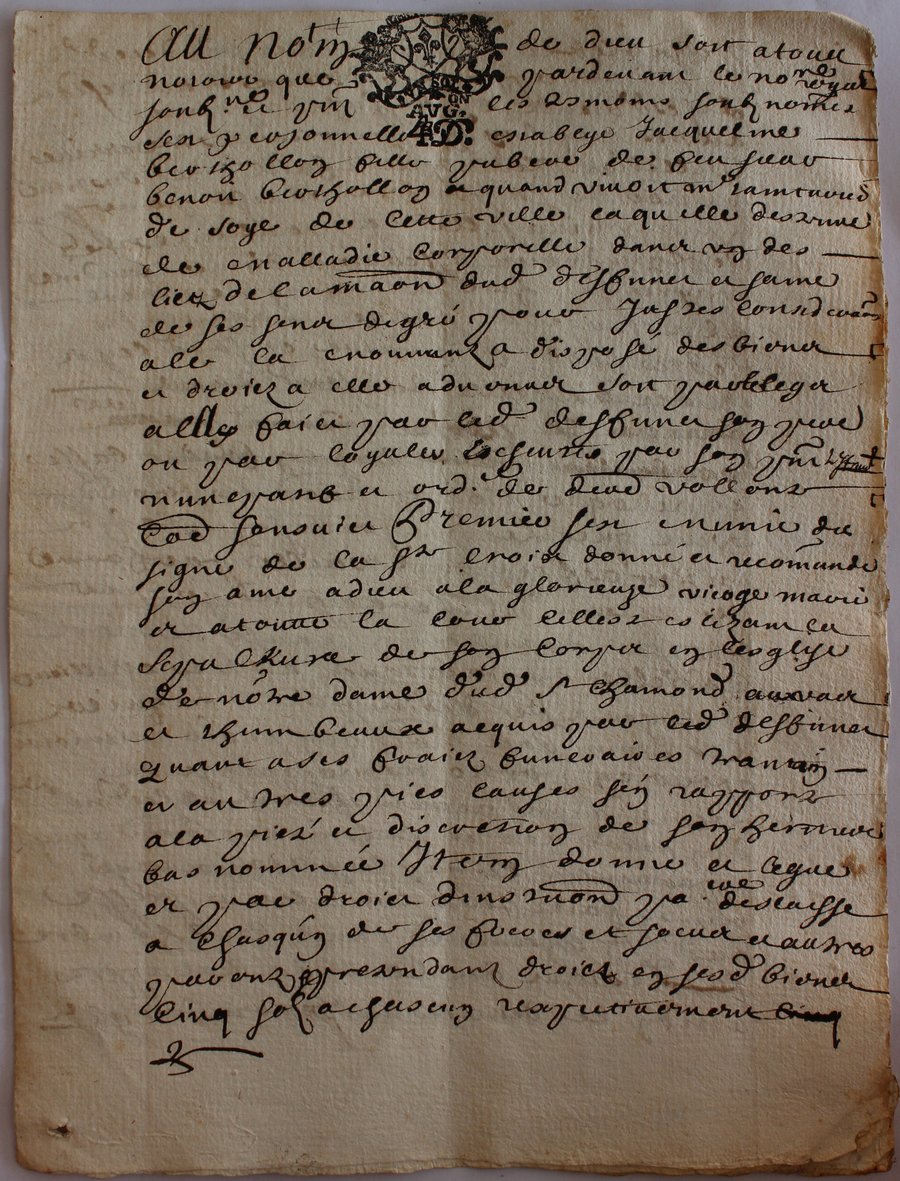 Au nom de dieu soit a tous
notoire que pardevant le no.re royal
soub.ne et p.nt les tesmoins soub nommes
AUG.
4D.
sest personnellem establye Jacquelme
berthollon fille pubere de feu sieur
benoit berthollon quand vivoit m.e
de soye de cette ville laquelle destenue
de malladie corporelle dans un des
lietz de la maison dud deffunct et saine
de ses sens de gré pour Justes considerãons
a disposé des biens
et droictz a elle advenus soit par leger
a elle faict par led deffunct son pere
ou par loyalle
nuncupatif et ord.e de dernd vollonte
Co͠e sensuict Premier sest munie du
signe de la s.te croix donné et recom̃andé
son ame a dieu a la glorieuze vierge marie
et a toutte la cour celleste eslizant la
sepulture de son corps en lesglise
de nõtre dame dud S.t chamond au vas
et thumbeaux acquis par led deffunct
quant a ses fraictz funeraires
et autres pies causes sen rapporte
a la pieté et discretion de son heritiere
bas nommée Item donne et legue
et par droict dinstitution p͠a.lre delaisse
a chasqun de ses freres et soeurs et autres
parents pretendant droict en sesd biens
Cinq solz a chascun respectivement cinq